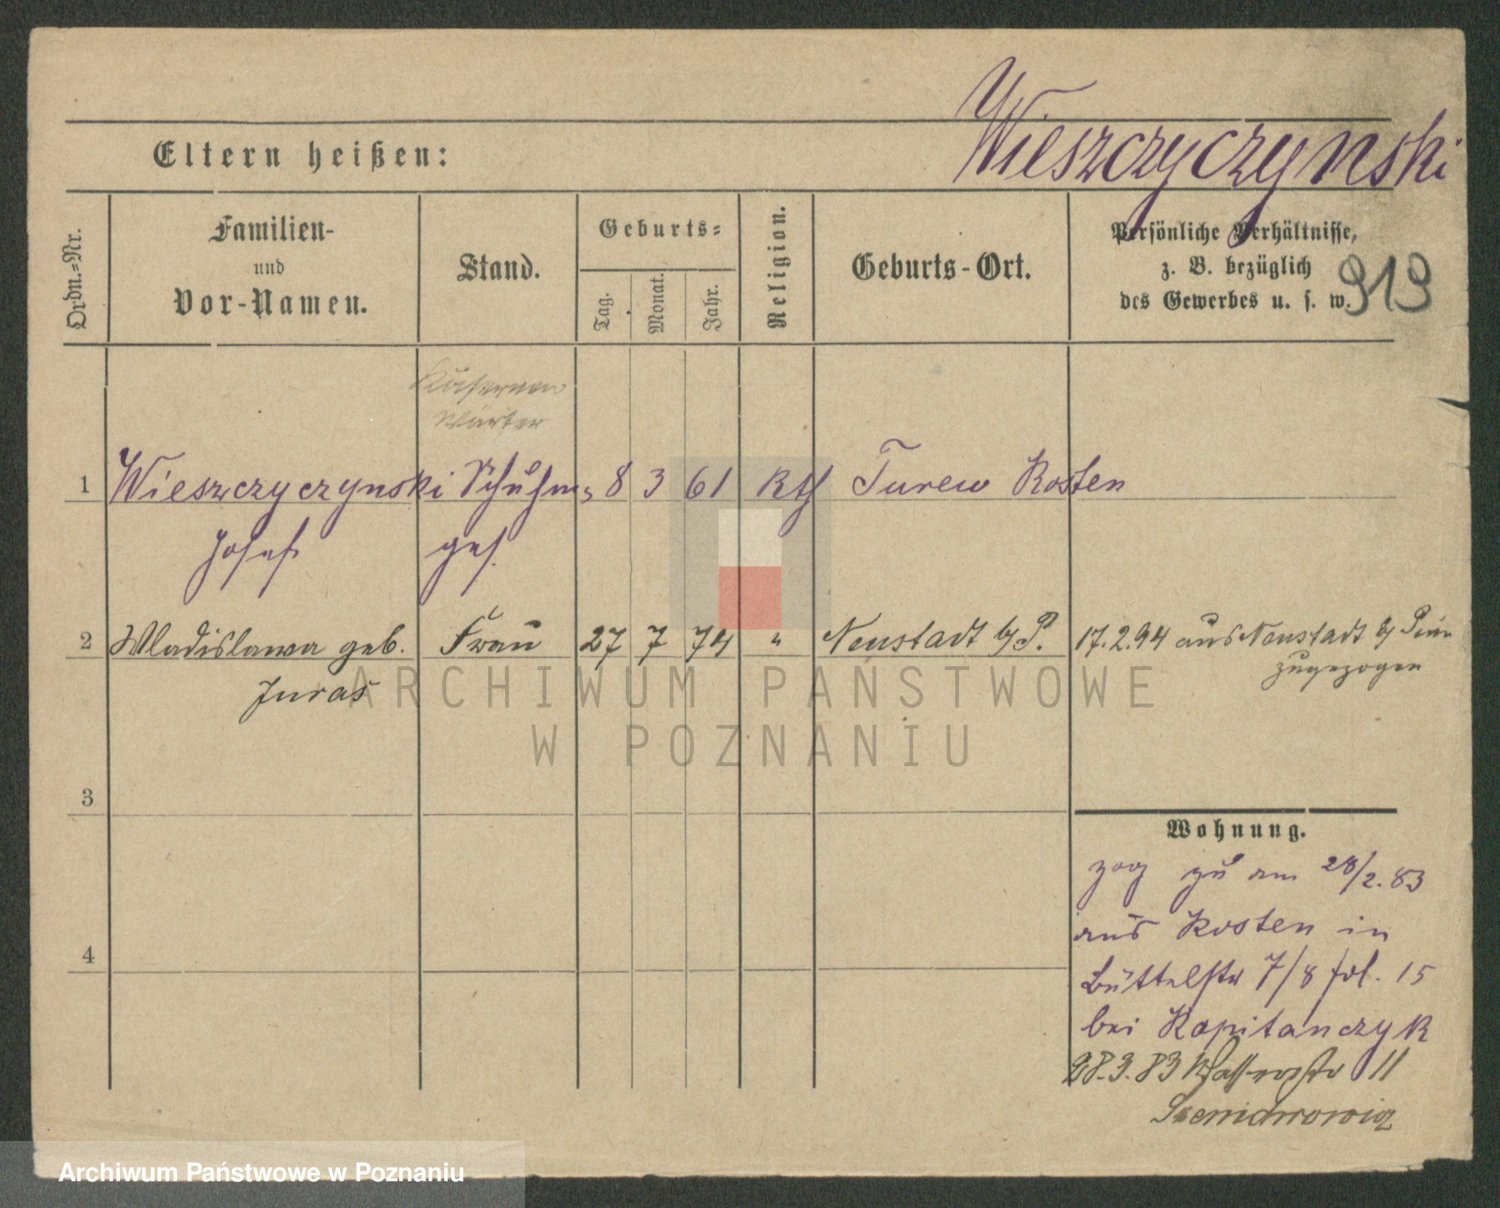 Wieszczyczynski
Eltern heißen:
Ordn.=Nr.
Familien-
und
Vor-Namen.
Stand.
Geburts=
Tag.
Monat.
Jahr.
Religion.
Geburts-Ort.
Persönliche Verhältnisse,
z. B. bezüglich
des Gewerbes u. s. w.
919
Kasernen
Wärter
1 Wieszczyczynski Schuhm= 8 3 61 Kth Turew Kosten
Josef ges.
2 Wladislawa geb. Frau 27 7 74 " Neustadt b/P. 17.2.94 aus Neustadt b/ Pinne
Juras zugezogen
3
4
Wohnung.
zog zu am 28/2.83
aus Kosten in
Büttelstr 7/8 fol. 15
bei Kapitanczyk
28.3.83 Wasserstr 11
ARCHIWUM PAŃSTWOWE
W POZNANIU
Archiwum Państwowe w Poznaniu